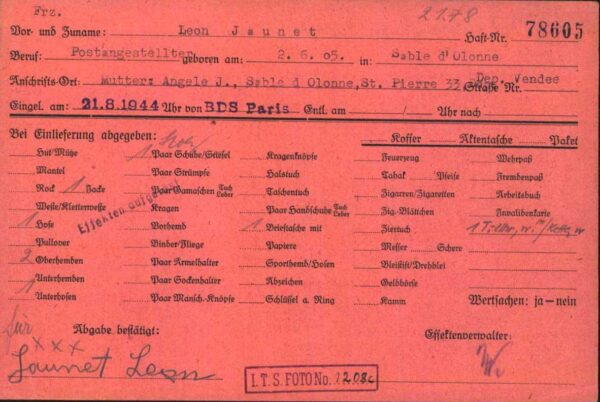 Frz. 2178
Vor- und Zuname: Leon Jaunet Haft-Nr. 78605
Beruf: Postangestellter geboren am: 2.6.05. in: Sable d'Olonne
Anschrifts-Ort: Mutter: Angele J., Sable d Olonne, St. Pierre 33 Straße Nr. Dep. Vendee
Eingel. am: 21.8.1944 Uhr von BDS Paris Entl. am / Uhr nach
Bei Einlieferung abgegeben: Koffer Aktentasche Paket
Hut/Mütze 1 Paar Schuhe/Stiefel Kragenknöpfe Feuerzeug Wehrpaß
Mantel Paar Strümpfe Halstuch Tabak Pfeife Fremdenpaß
Rock 1 Jacke Paar Gamaschen Tuch Leder Taschentuch Zigarren/Zigaretten Arbeitsbuch
Weste/Kletterweste Kragen Paar Handschuhe Tuch Leder Zig.-Blättchen Invalidenkarte
1 Hose Vorhemd 1 Brieftasche mit Ziertuch
Pullover Binder/Fliege Papiere Messer Schere
2 Oberhemden Paar Armelhalter Sporthemd/Hosen Bleistift/Drehblei
Unterhemden Paar Sockenhalter Abzeichen Geldbörse
1 Unterhosen Paar Mansch.-Knöpfe Schlüssel a. Ring Kamm Wertsachen: ja—nein
Effekten
für Abgabe bestätigt: Effektenverwalter:
xxx
Jaunet Leon
I.T.S. FOTO No.